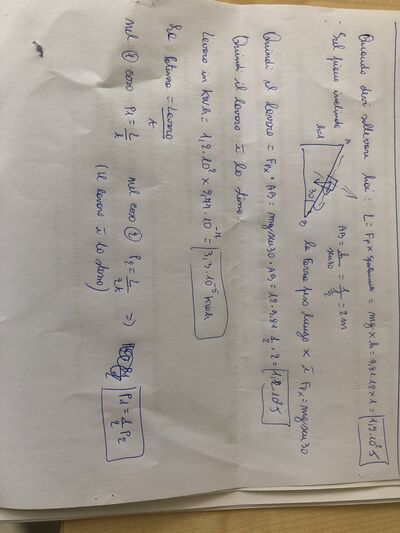 Quando devi sollevare hai: L = FP x spostamento = mg x h = 9,81·12 x 1 = 1,2·10² J
Sul piano inclinato
A
h=1
30
B
AB = h/sen30 = 1/½ = 2m
la forza peso lungo x è FPx = mg sen30
Quindi il lavoro = FPx · AB = mg sen30 · AB = 12·9,81·½·2 = 1,2·10² J
Quindi il lavoro è lo stesso.
Lavoro in kWh = 1,2·10² x 2,77·10⁻⁷ = 3,3·10⁻⁵ kWh
La potenza = Lavoro/t
nel ① caso P1 = L/t nel caso ② P2 = L/2t => P1 = ½ P2
(il lavoro è lo stesso)